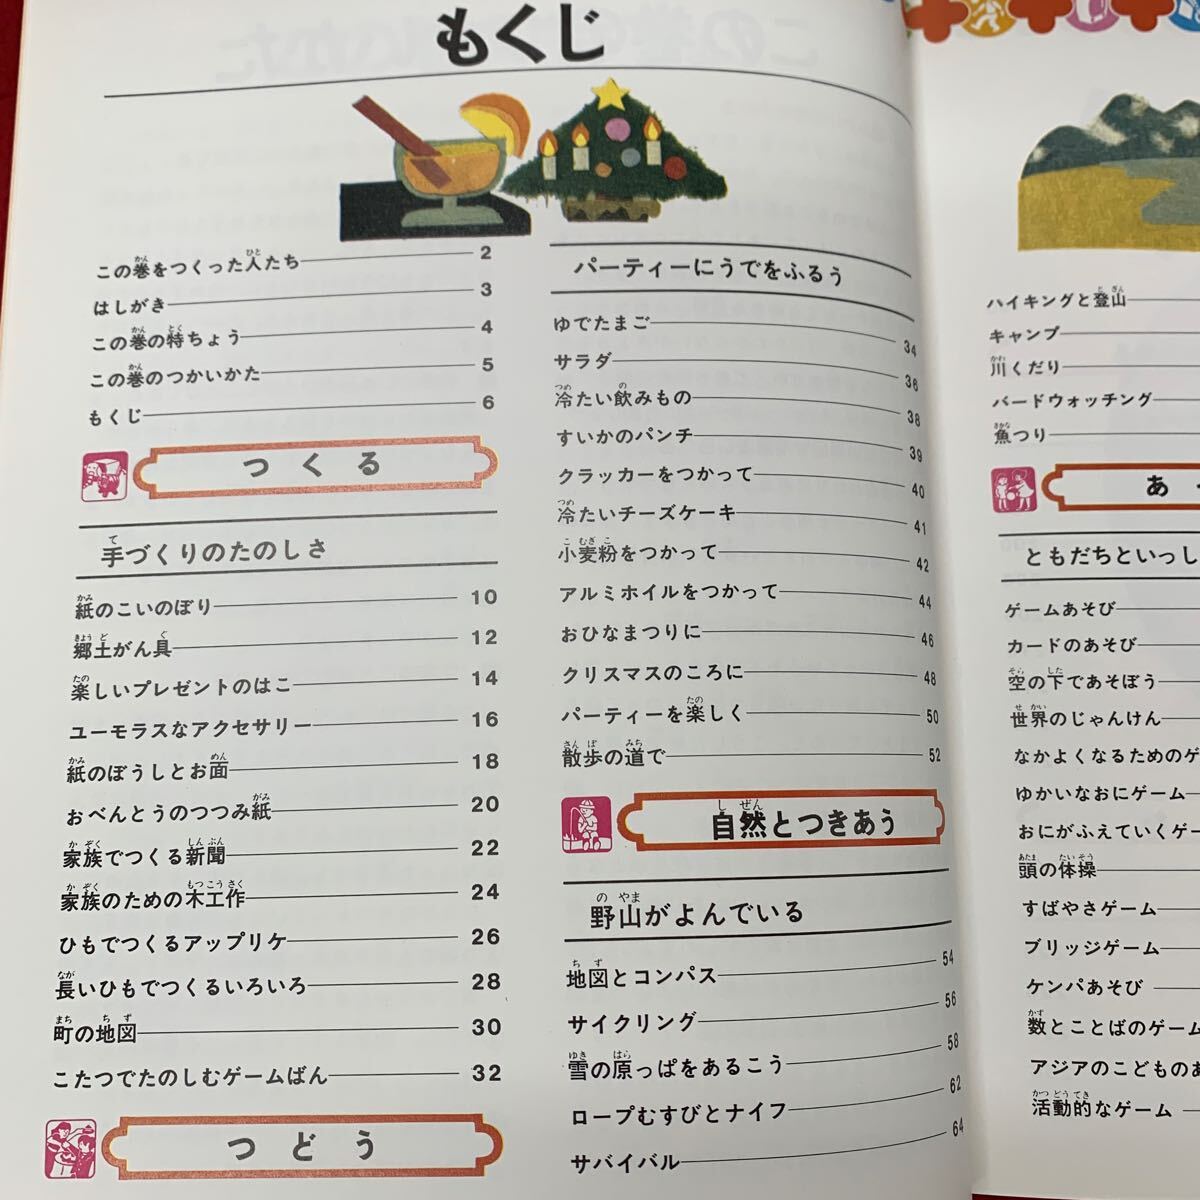 もくじ
この巻をつくった人たち 2
はしがき 3
この巻の特ちょう 4
この巻のつかいかた 5
もくじ 6
つくる
手づくりのたのしさ
紙のこいのぼり 10
郷土がん具 12
楽しいプレゼントのはこ 14
ユーモラスなアクセサリー 16
紙のぼうしとお面 18
おべんとうのつつみ紙 20
家族でつくる新聞 22
家族のための木工作 24
ひもでつくるアップリケ 26
長いひもでつくるいろいろ 28
町の地図 30
こたつでたのしむゲームばん 32
つどう
パーティーにうでをふるう
ゆでたまご 34
サラダ 36
冷たい飲みもの 38
すいかのパンチ 39
クラッカーをつかって 40
冷たいチーズケーキ 41
小麦粉をつかって 42
アルミホイルをつかって 44
おひなまつりに 46
クリスマスのころに 48
パーティーを楽しく 50
散歩の道で 52
自然とつきあう
野山がよんでいる
地図とコンパス 54
サイクリング 56
雪の原っぱをあるこう 58
ロープむすびとナイフ 62
サバイバル 64
ハイキングと登山
キャンプ
川くだり
バードウォッチング
魚つり
あ
ともだちといっし
ゲームあそび
カードのあそび
空の下であそぼう
世界のじゃんけん
なかよくなるためのゲ
ゆかいなおにゲーム
おにがふえていくゲー
頭の体操
すばやさゲーム
ブリッジゲーム
ケンパあそび
数とことばのゲーム
アジアのこどものあ
活動的なゲーム